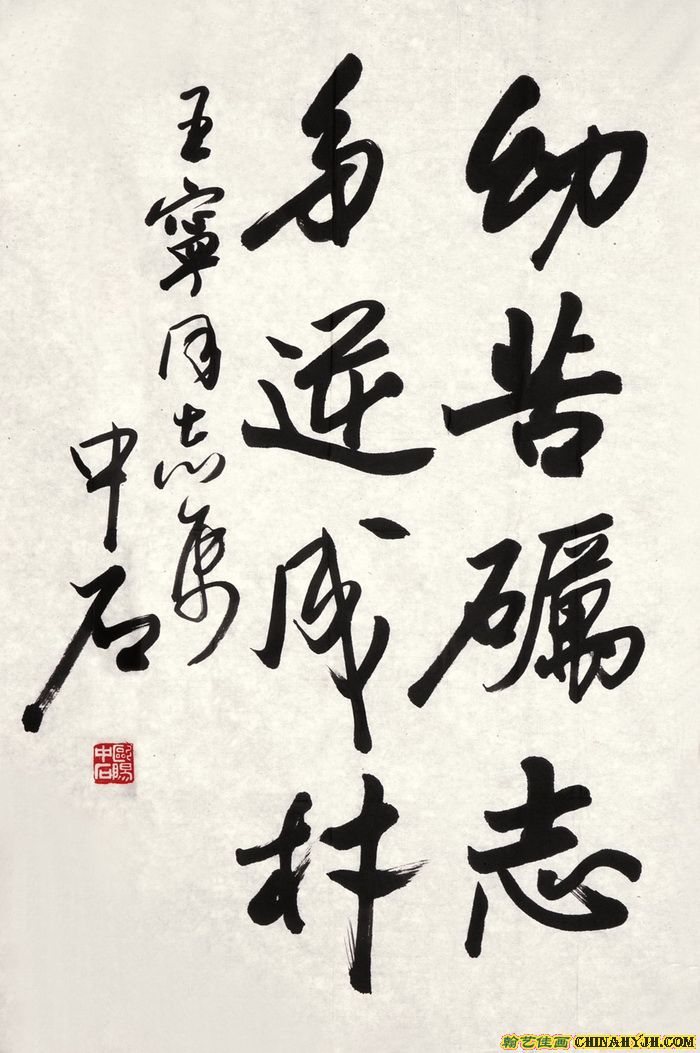 幼苦礪志
多逆成材
王寧同志属
中石
歐陽中石
翰艺佳画 CHINAHYJH.COM